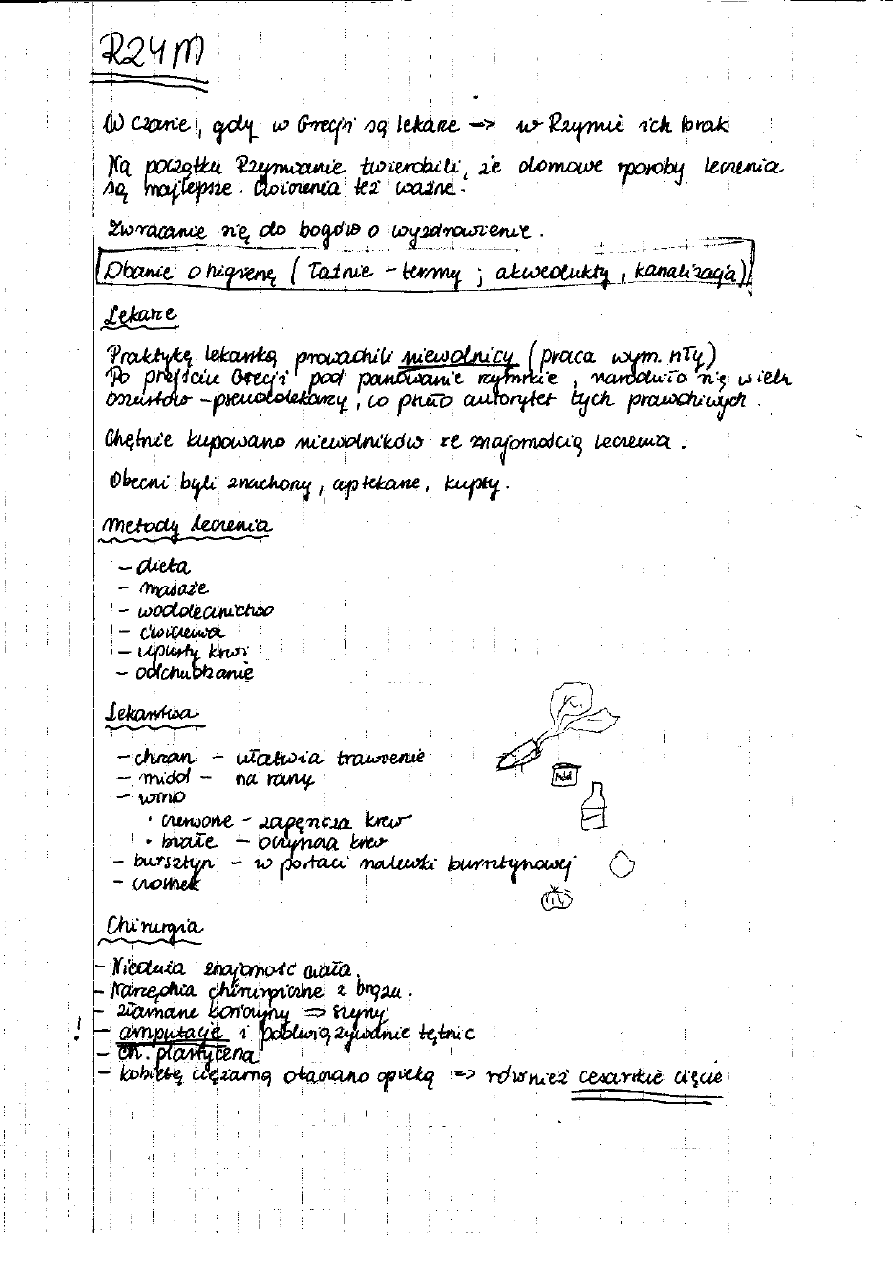 RZYM
W czasie, gdy w Grecji są lekarze -> w Rzymie ich brak
Na początku Rzymianie twierdzili, że domowe sposoby leczenia
są najlepsze. Ćwiczenia też ważne.
Zwracanie się do bogów o wyzdrowienie.
Dbanie o higienę (łaźnie - termy ; akwedukty, kanalizacja)
Lekarze
Praktykę lekarską prowadzili niewolnicy (praca wym. siły)
Po przejściu Grecji pod panowanie rzymskie, narodziło się wielu
oszustów - pseudolekarzy, co psuło autorytet tych prawdziwych.
Chętnie kupowano niewolników ze znajomością leczenia.
Obecni byli znachorzy, aptekarze, kupcy.
Metody leczenia
- dieta
- masaże
- wodolecznictwo
- ćwiczenia
- upusty krwi
- odchudzanie
Lekarstwa
- chrzan - ułatwia trawienie
- miód - na rany
- wino
• czerwone - zagęszcza krew
• białe - oczyszcza krew
- bursztyn - w postaci nalewki bursztynowej
- czosnek
Miód
Chirurgia
- Niezła znajomość ciała.
- Narzędzia chirurgiczne z brązu.
- złamane kończyny => szyny
! - amputacje i podwiązywanie tętnic
- ch. plastyczna
- kobietę ciężarną otaczano opieką => również cesarskie cięcie